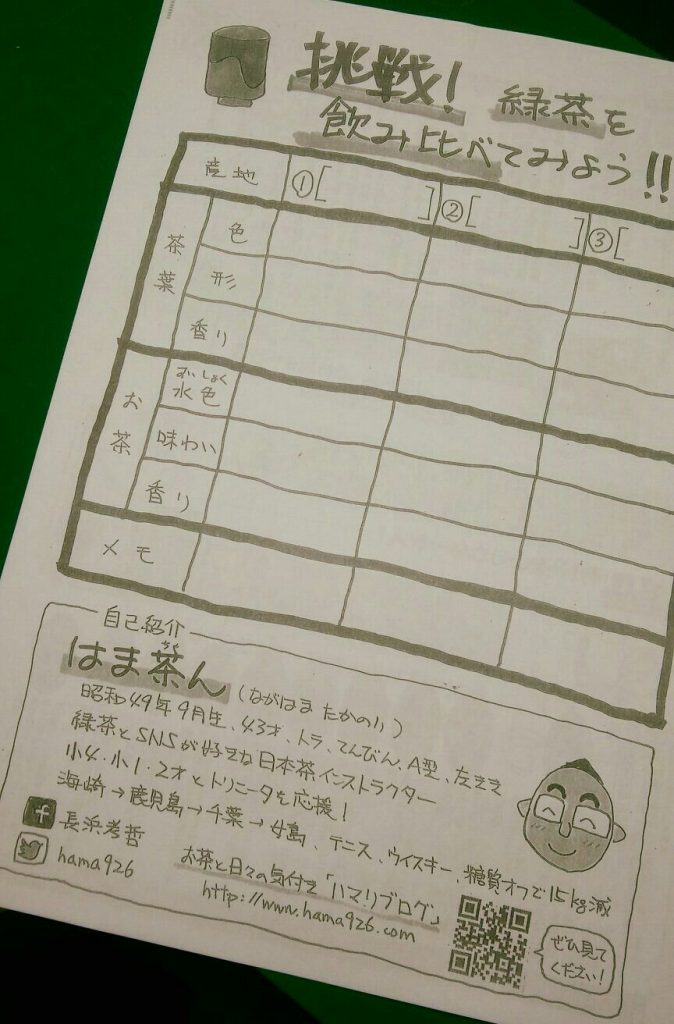 挑戦! 緑茶を
飲み比べてみよう!!
産地 ①[ ] ②[ ] ③[
茶葉
色
形
香り
お茶
すいしょく
水色
味わい
香り
メモ
自己紹介
はま茶ん (ながはま たかのり)
昭和49年9月生、43才、トラ、てんびん、A型、左きき
緑茶とSNSが好きな日本茶インストラクター
小4・小1・2才とトリニータを応援!
→鹿児島→千葉→ 、テニス、ウイスキー、糖質オフで15kg減
長浜考哲
hama926
お茶と日々の気付き「ハマリブログ」
http://www.hama926.com
ぜひ見て
ください!